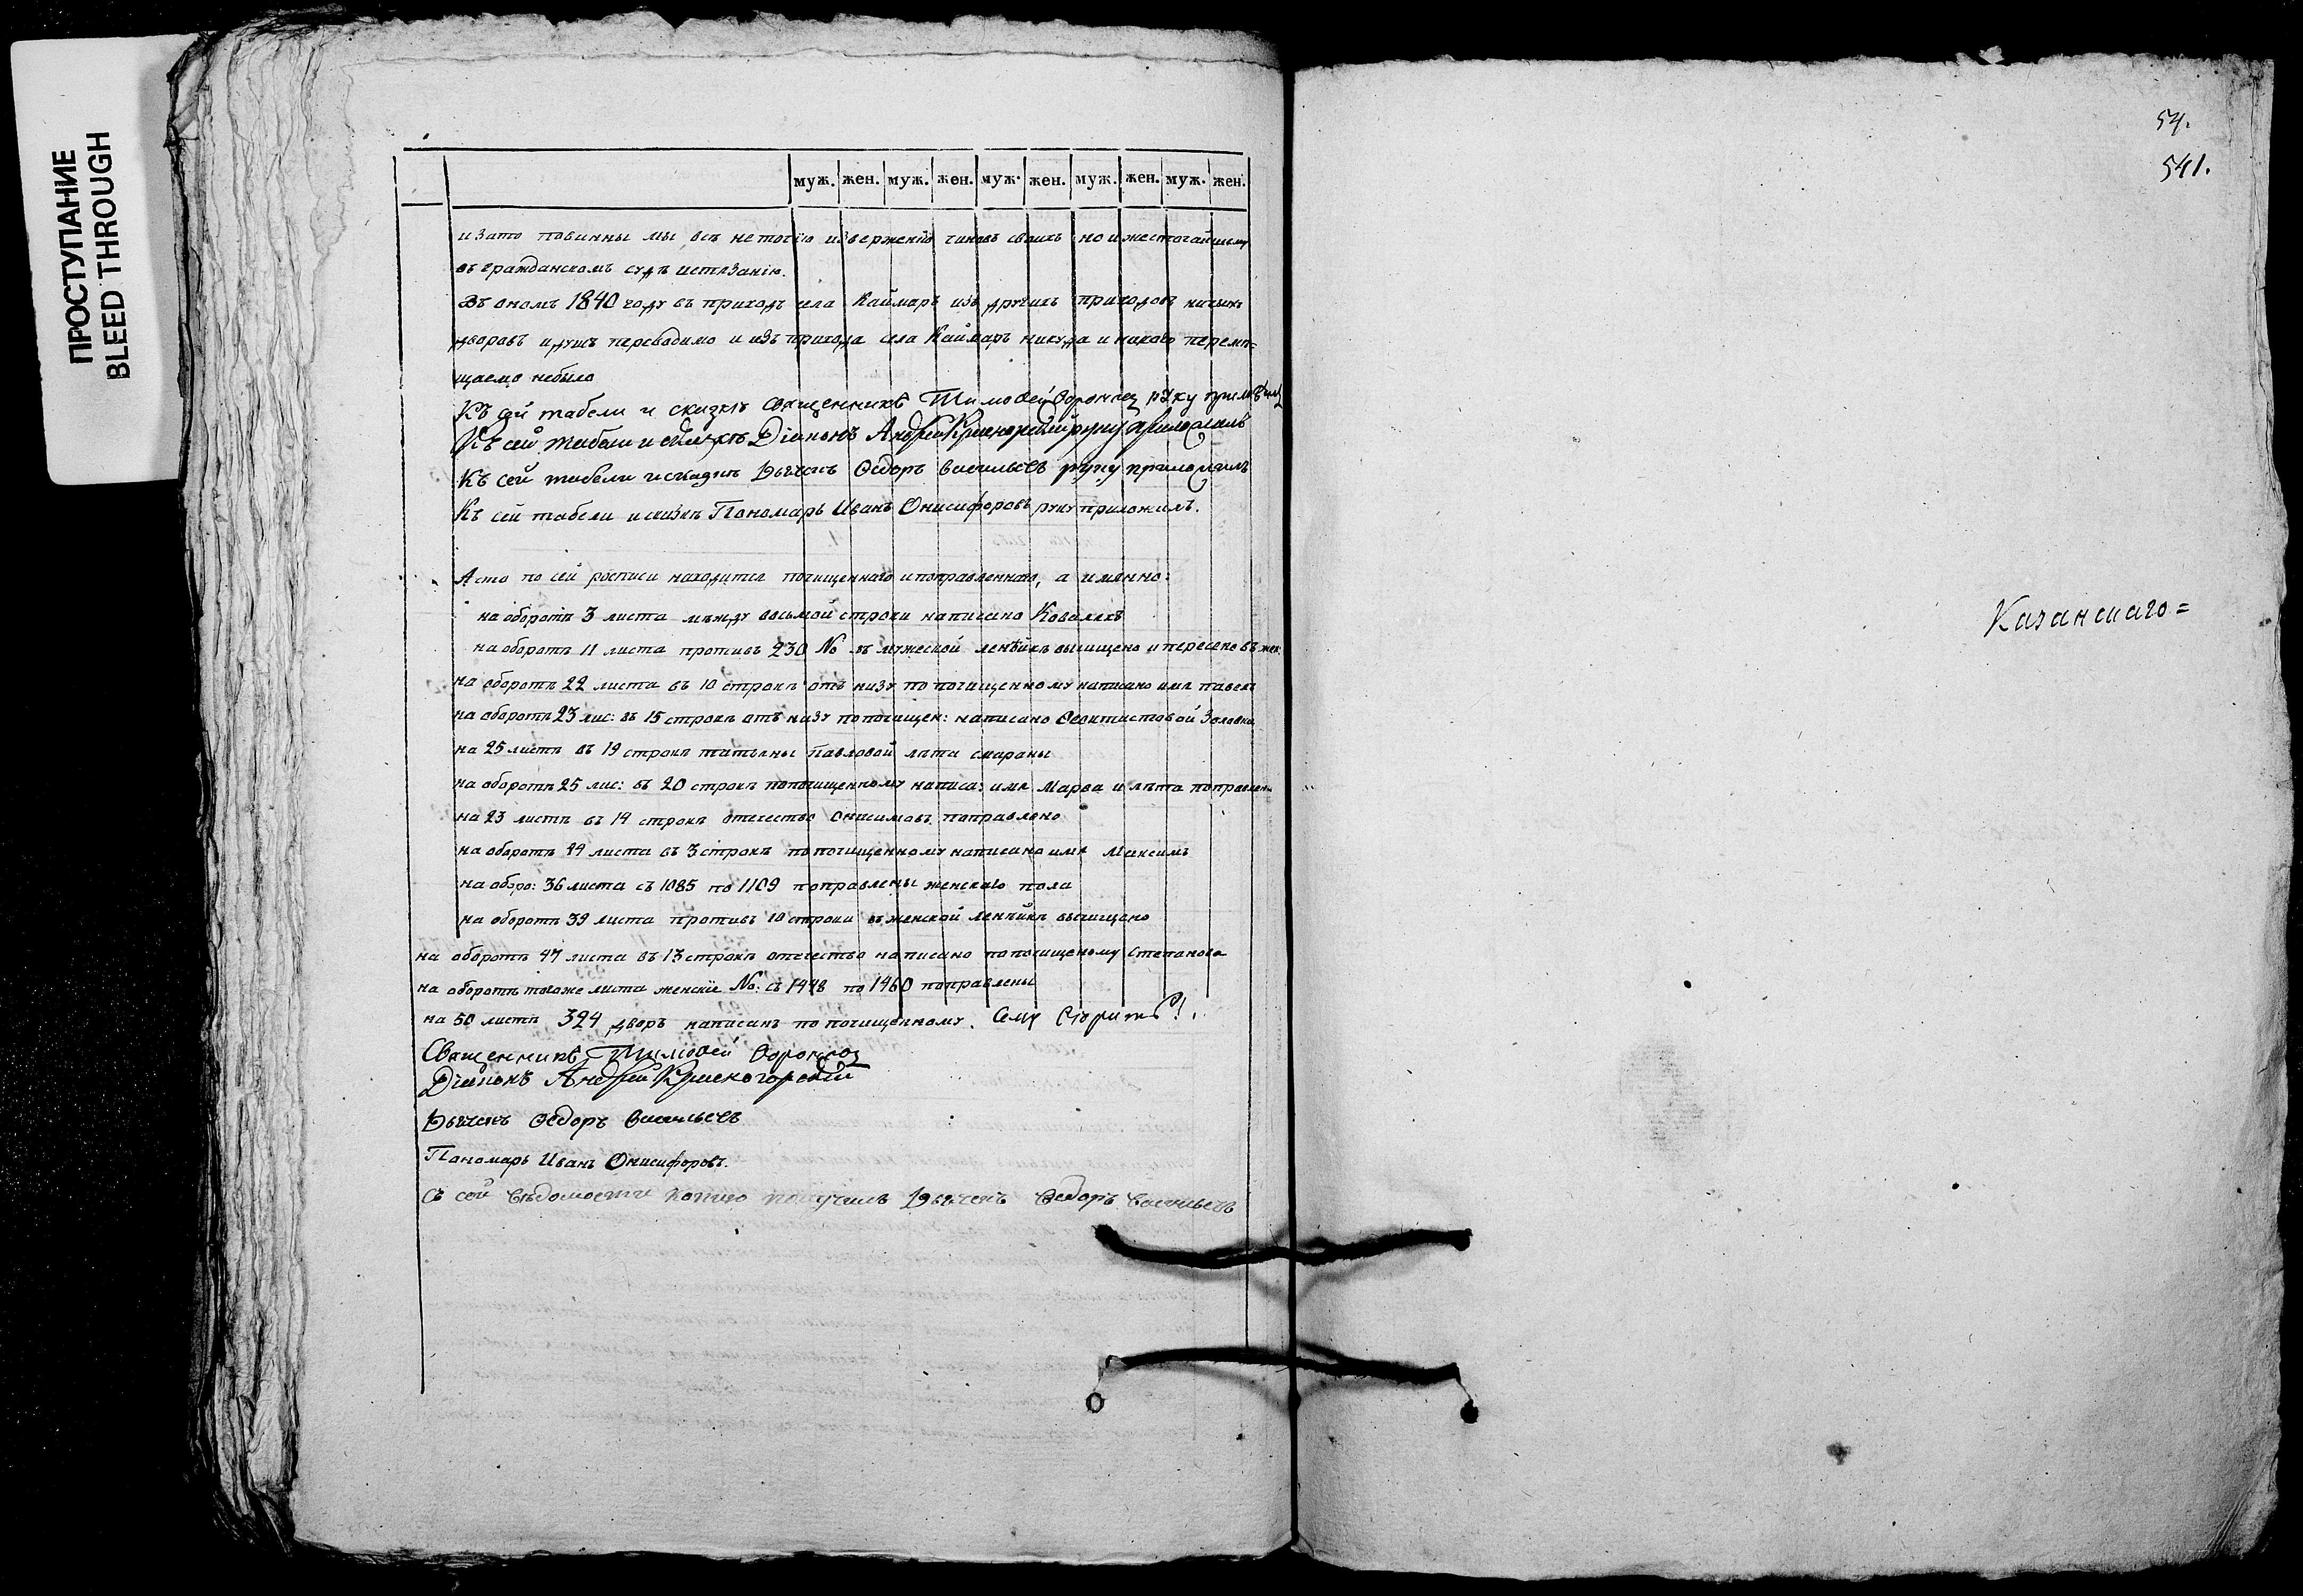 ПРОСТУПАНИЕ
BLEED THROUGH
муж. жен. муж. жен. муж. жен. муж. жен. муж. жен.
и зато повинны мы всѣ неточїю изверженїю чиновъ своихъ но и жесточайшему
въ гражданскомъ судѣ истязанїю.
Въ ономъ 1840 году въ приходъ села Каймаръ изъ другихъ приходовъ ничьихъ
дворовъ и душъ переводимо и изъ прихода села Каймаръ никуда и никого перемѣ=
щаемо небыло
Къ сей табели и сказкѣ священникъ Тимоѳей Воронцов руку приложилъ
Къ сей табели и сказкѣ Дїаконъ Андрей Красногорскїй руку приложилъ
Къ сей табели и сказкѣ Дьячекъ Ѳедоръ Васильевъ руку приложилъ
Къ сей табели и сказкѣ Пономарь Иванъ Онисифоровъ руку приложилъ.
А что по сей росписи находится почищеннаго и поправленнаго, а именно:
на оборотѣ 3 листа между восьмой строки написано Ковалихъ
на оборотѣ 11 листа противъ 230 № въ мужеской ленѣйкѣ вычищено и пересено въ жен:
на оборотѣ 22 листа въ 10 строкѣ отъ низу по почищенному написано имя павелъ
на оборотѣ 23 лис: въ 15 строкѣ отъ низу по почищен: написано Ѳеоктистовой Золовка
на 25 листѣ въ 19 строкѣ татьяны Павловой лѣта смараны
на оборотѣ 25 лис: въ 20 строкѣ по почищенному написа: имя Марѳа и лѣта поправлены
на 23 листѣ въ 14 строкѣ отечество Онисимовъ поправлено
на оборотѣ 29 листа въ 3 строкѣ по почищенному написано имя Максимъ
на оборо: 36 листа съ 1085 по 1109 поправлены женскаго пола
на оборотѣ 39 листа противъ 10 строки въ женской ленѣйкѣ вычищено
на оборотѣ 47 листа въ 13 строкѣ отечество написано по почищеному Степанова
на оборотѣ тогоже листа женскїе №: съ 1448 по 1460 поправлены
на 50 листѣ 324 дворъ написанъ по почищенному.
Священникъ Тимоѳей Воронцов
Дїаконъ Андрей Красногорскїй
Дьячекъ Ѳедоръ Васильевъ
Пономарь Иванъ Онисифоровъ.
Съ сей вѣдомости копию получилъ Дьячекъ Ѳедоръ Васильевъ
54.
541.
Казанскаго=